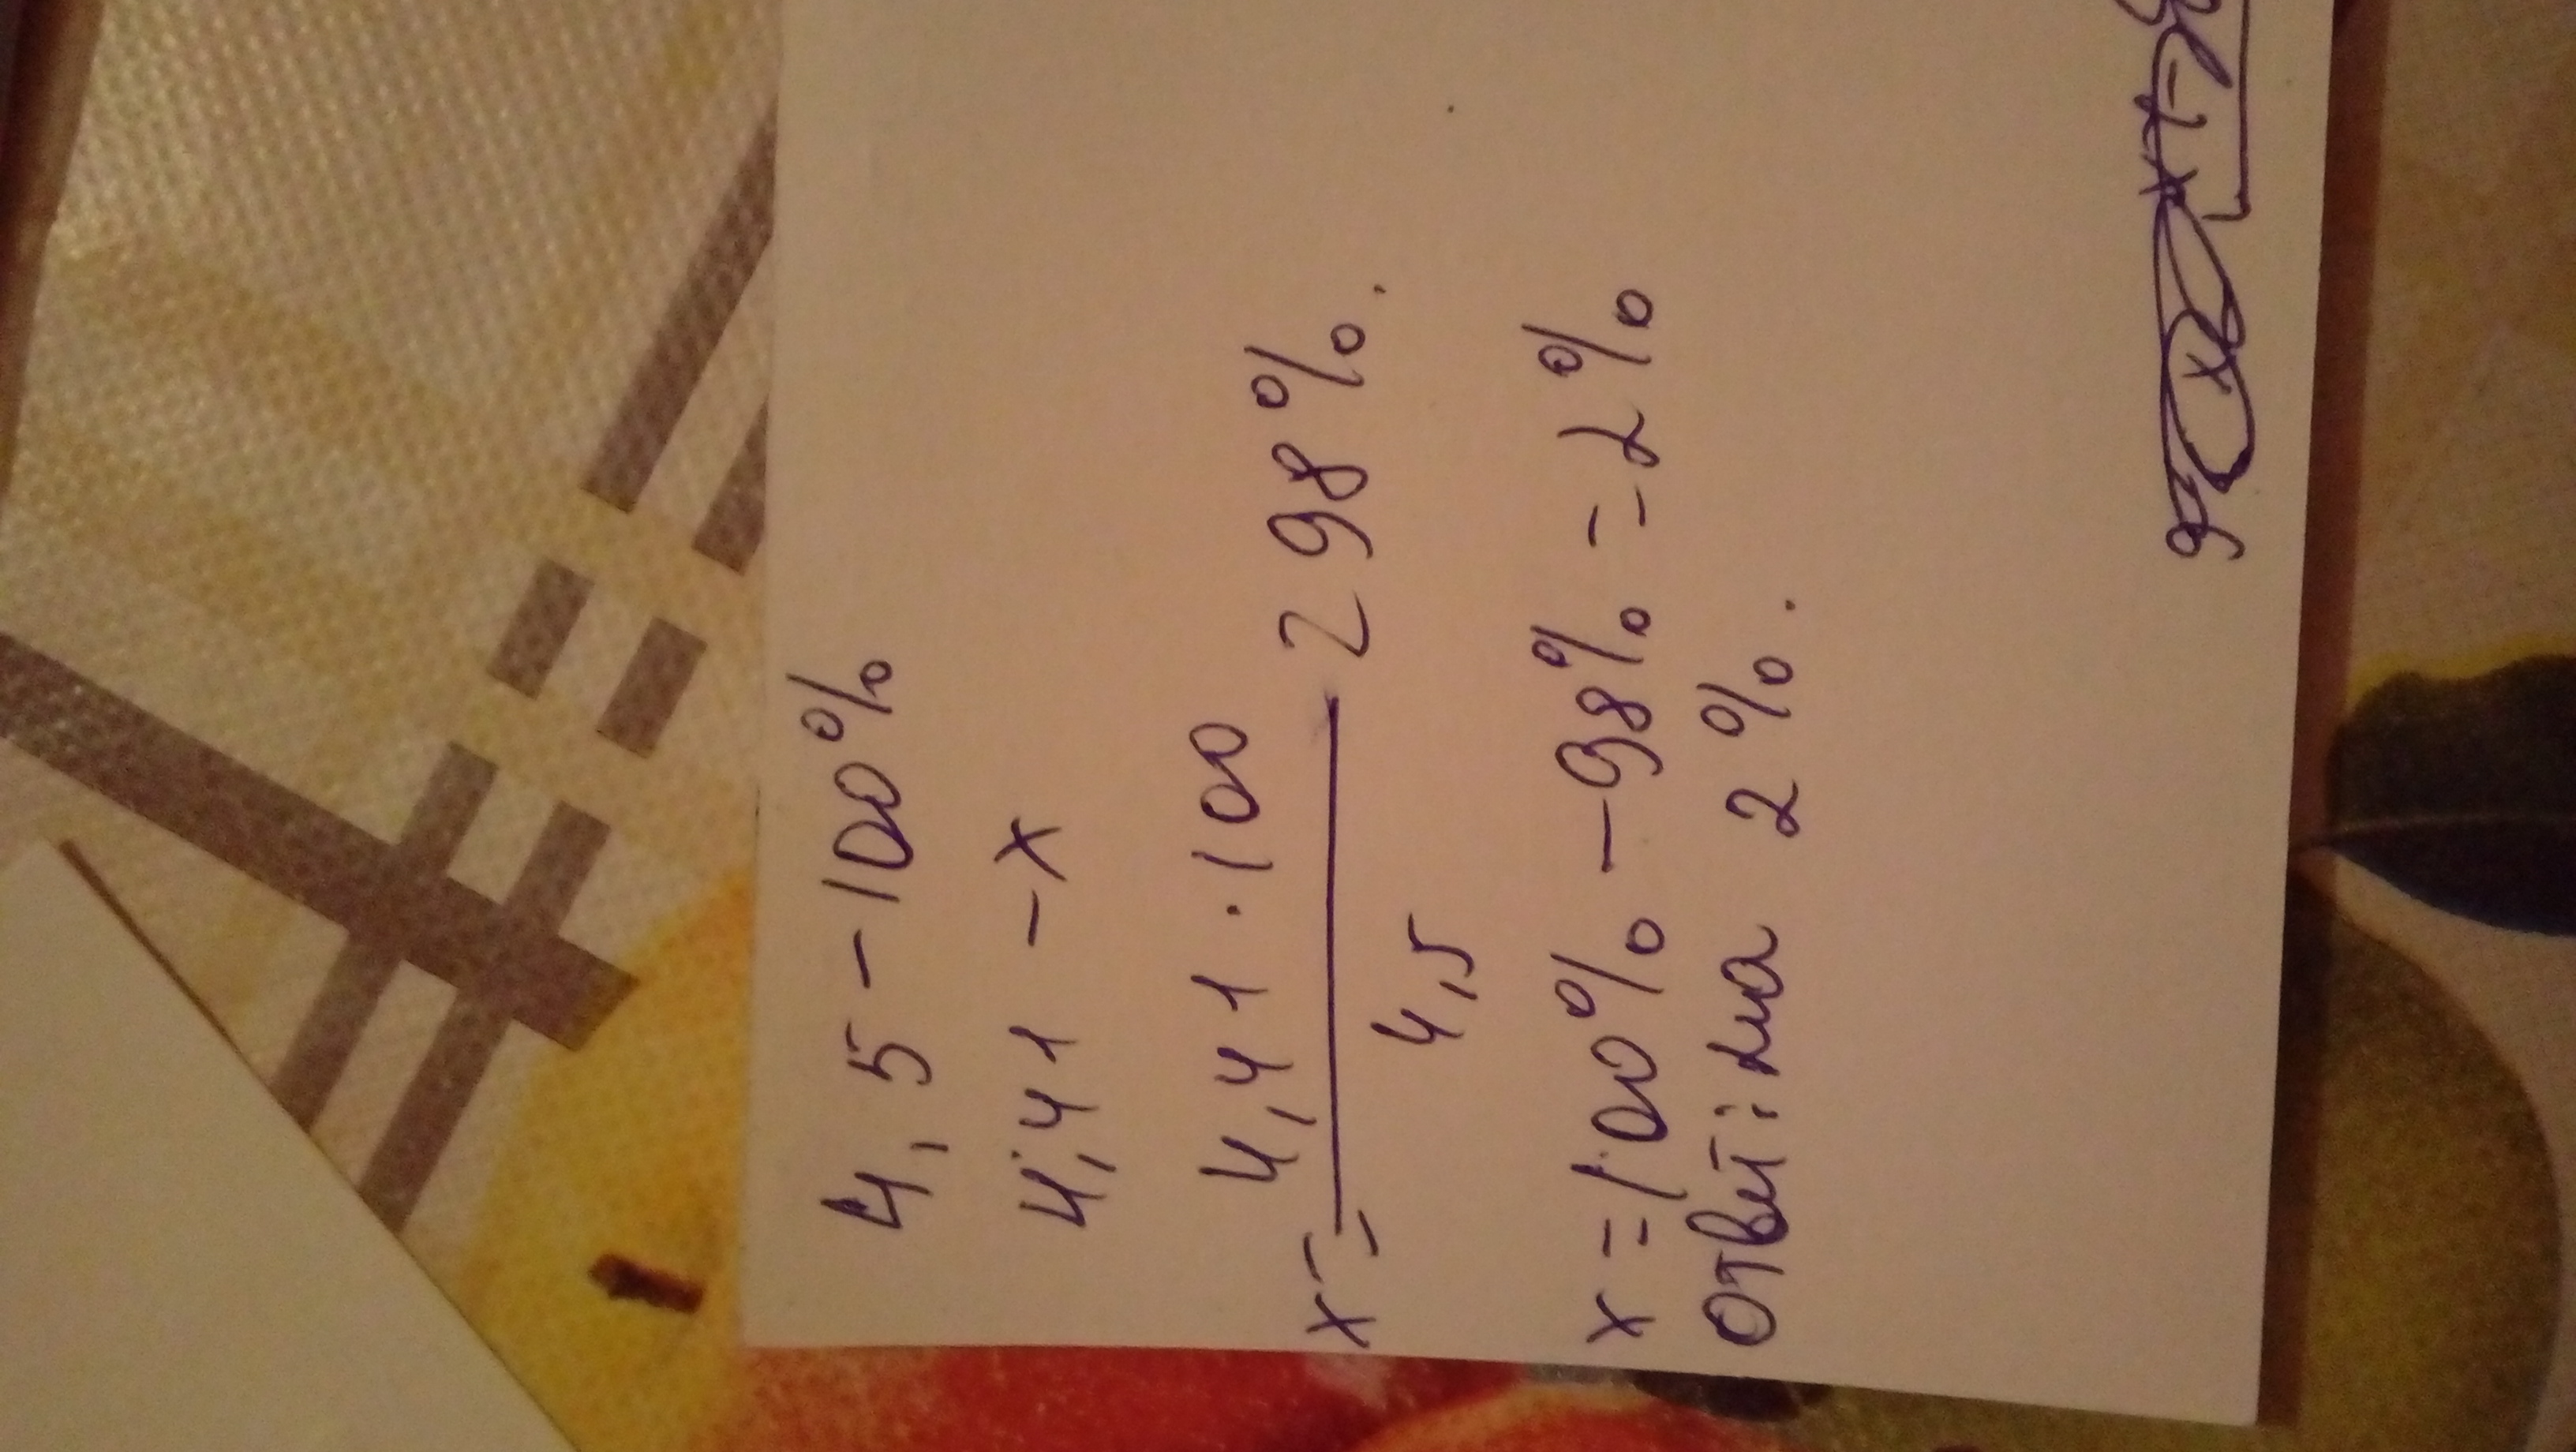 4,5 - 100%
4,41 - x
4,41 · 100
x = 98%.
4,5
x = 100% - 98% = 2%
Ответ: на 2%.